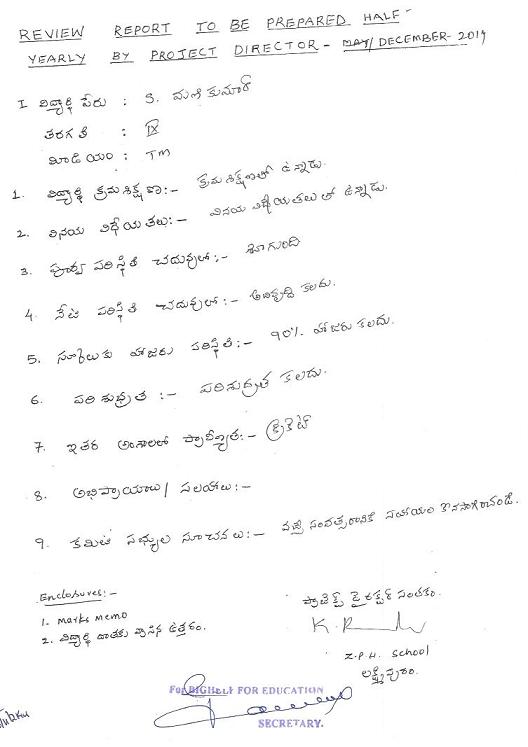 REVIEW REPORT TO BE PREPARED HALF
YEARLY BY PROJECT DIRECTOR - MAY/DECEMBER- 2019
I విద్యార్థి పేరు : S. మణి కుమార్
తరగతి : IX
మీడియం : TM
1. విద్యార్థి క్రమశిక్షణ:- క్రమశిక్షణతో ఉన్నాడు.
2. వినయ విధేయతలు:- వినయ విధేయతలు తో ఉన్నాడు.
3. పూర్వ పరిస్థితి చదువులో:- బాగుంది
4. నేటి పరిస్థితి చదువులో:- అభివృద్ధి కలదు.
5. స్కూలుకు హాజరు పరిస్థితి:- 90% హాజరు కలదు.
6. పరిశుభ్రత :- పరిశుభ్రత కలదు.
7. ఇతర అంశాలలో ప్రావీణ్యత:- క్రికెట్
8. అభిప్రాయాలు/ సలహాలు:-
9. కమిటి సభ్యుల సూచనలు:- వచ్చే సంవత్సరానికి సహాయం కొనసాగించండి.
Enclosures:-
1. Marks Memo
2. విద్యార్థి దాతకు వ్రాసిన ఉత్తరం.
ప్రాజెక్ట్ డైరెక్టర్ సంతకం.
Z.P.H. School
లక్ష్మీపురం.
For BIGHELP FOR EDUCATION
SECRETARY.